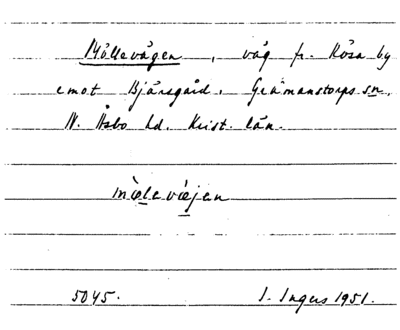 Möllevägen, väg fr. Rösa by
emot Bjärsgård. Gråmanstorps sn,
N. Åsbo hd. Krist. län.
5045. I. Ingers 1951.